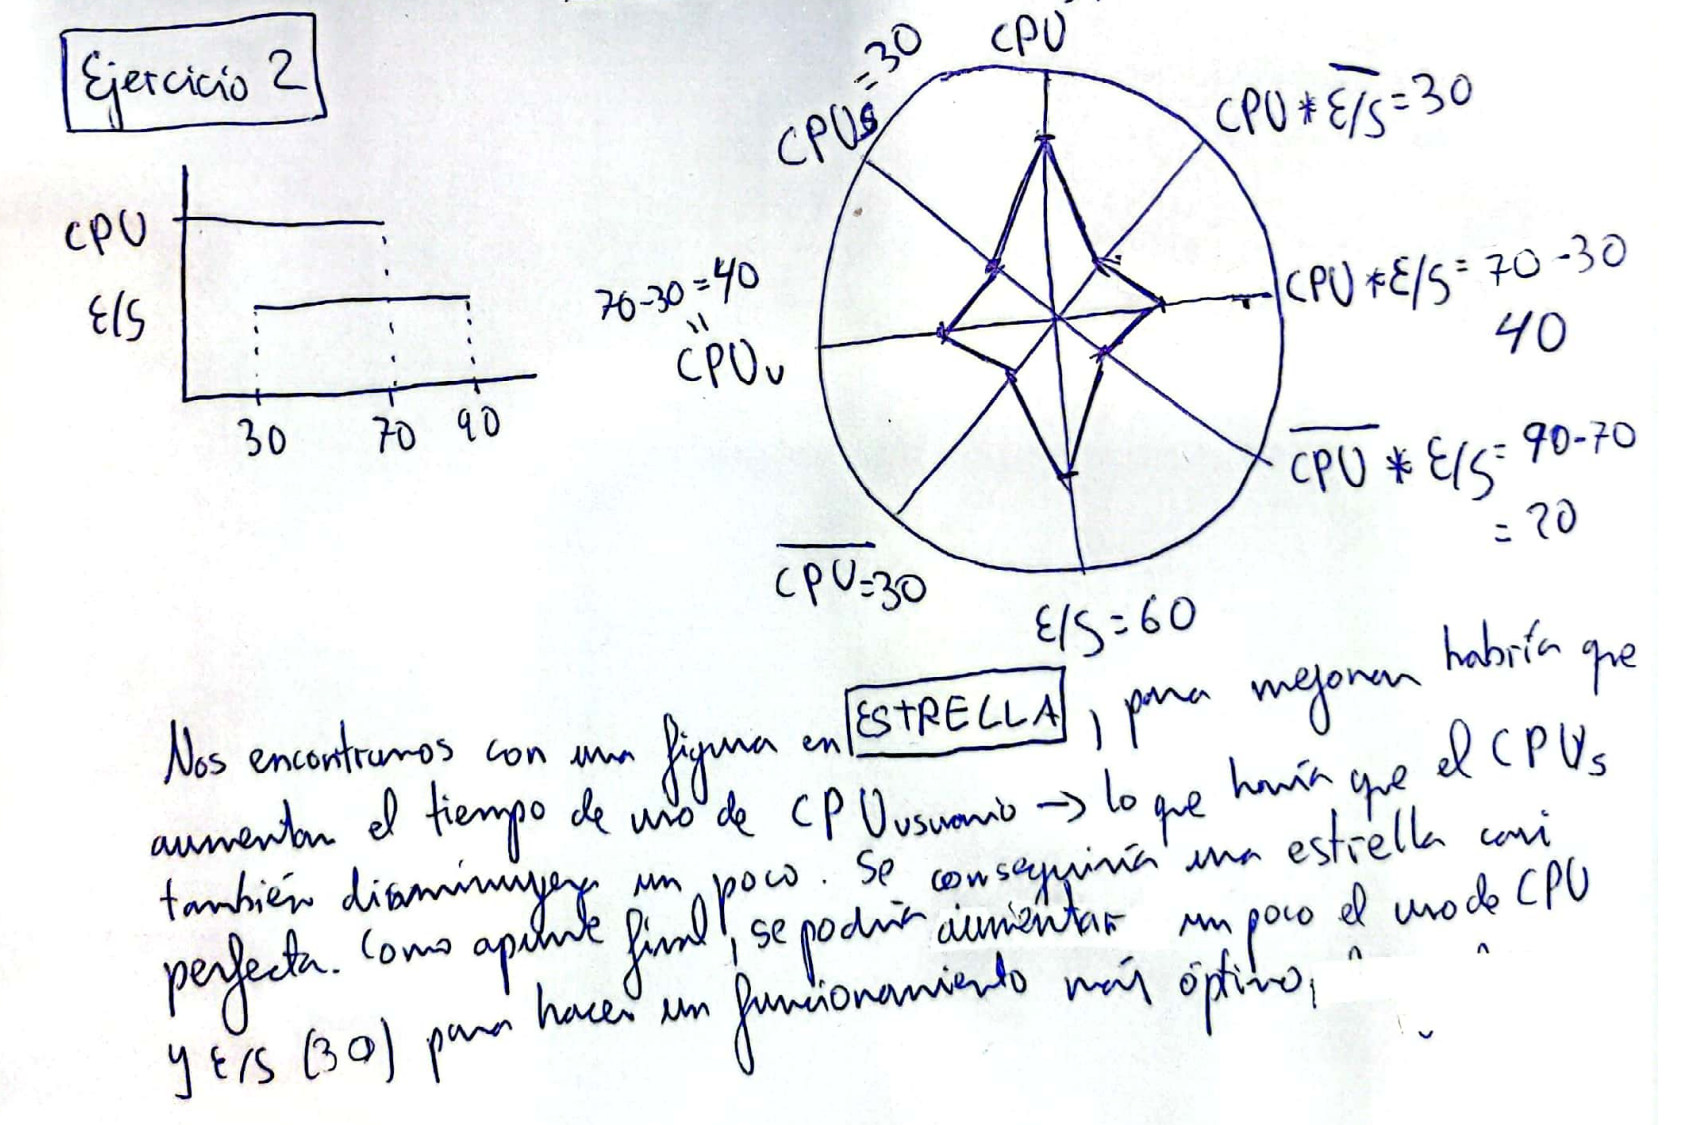 Ejercicio 2
CPU
E/S
30 70 90
CPU
CPU * E/S = 30
CPU * E/S = 70 - 30
40
CPU * E/S = 90 - 70
= 20
E/S = 60
CPU = 30
70 - 30 = 40
"
CPUu
CPUs = 30
Nos encontramos con una figura en ESTRELLA, para mejorar habría que
aumentar el tiempo de uso de CPUusuario → lo que haría que el CPUs
también disminuyera un poco. Se conseguiría una estrella casi
perfecta. Como apunte final, se podría aumentar un poco el uso de CPU
y E/S (30) para hacer un funcionamiento más óptimo,